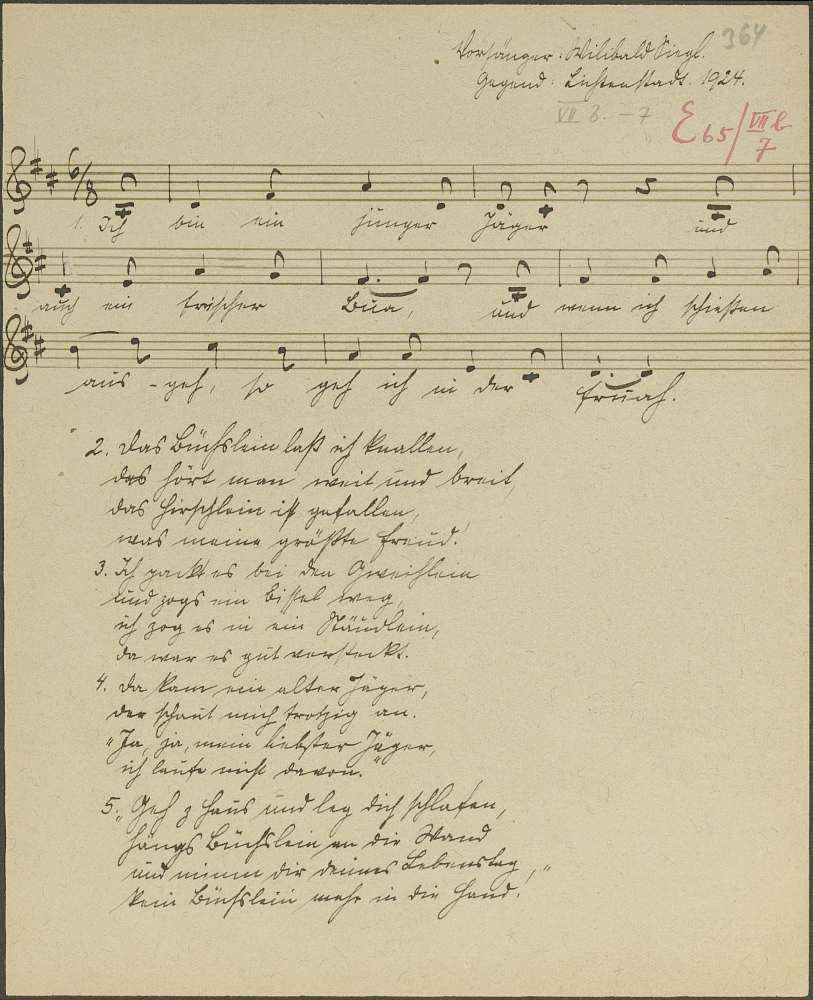 364
Vorsänger: Wilibald Siegl.
Gegend: Lichtenstadt. 1924.
VII B. - 7
E 65/VII b
7
6/8
1. Ich bin ein junger Jäger und
auch ein frischer Bua, und wenn ich schießen
aus - geh, so geh ich in der Fruah.
2. Das Büchslein laß ich knallen,
das hört man weit und breit,
das Hirschlein ist gefallen,
was meine größte Freud!
3. Ich packt es bei den Gweihlein
und zogs ein bissel weg,
ich zog es in ein Stäudlein,
da war es gut versteckt.
4. Da kam ein alter Jäger,
der schaut mich trotzig an.
"Ja, ja, mein liebster Jäger,
ich laufe nicht davon."
5. "Geh z Haus und leg dich schlafen,
hängs Büchslein an die Wand
und nimm dir deines Lebenstag,
kein Büchslein mehr in die Hand."